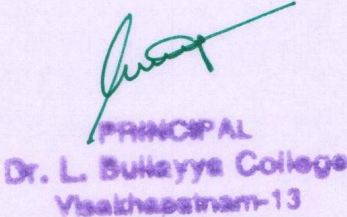 PRINCIPAL
Dr. L. Bullayya College
Visakhapatnam-13